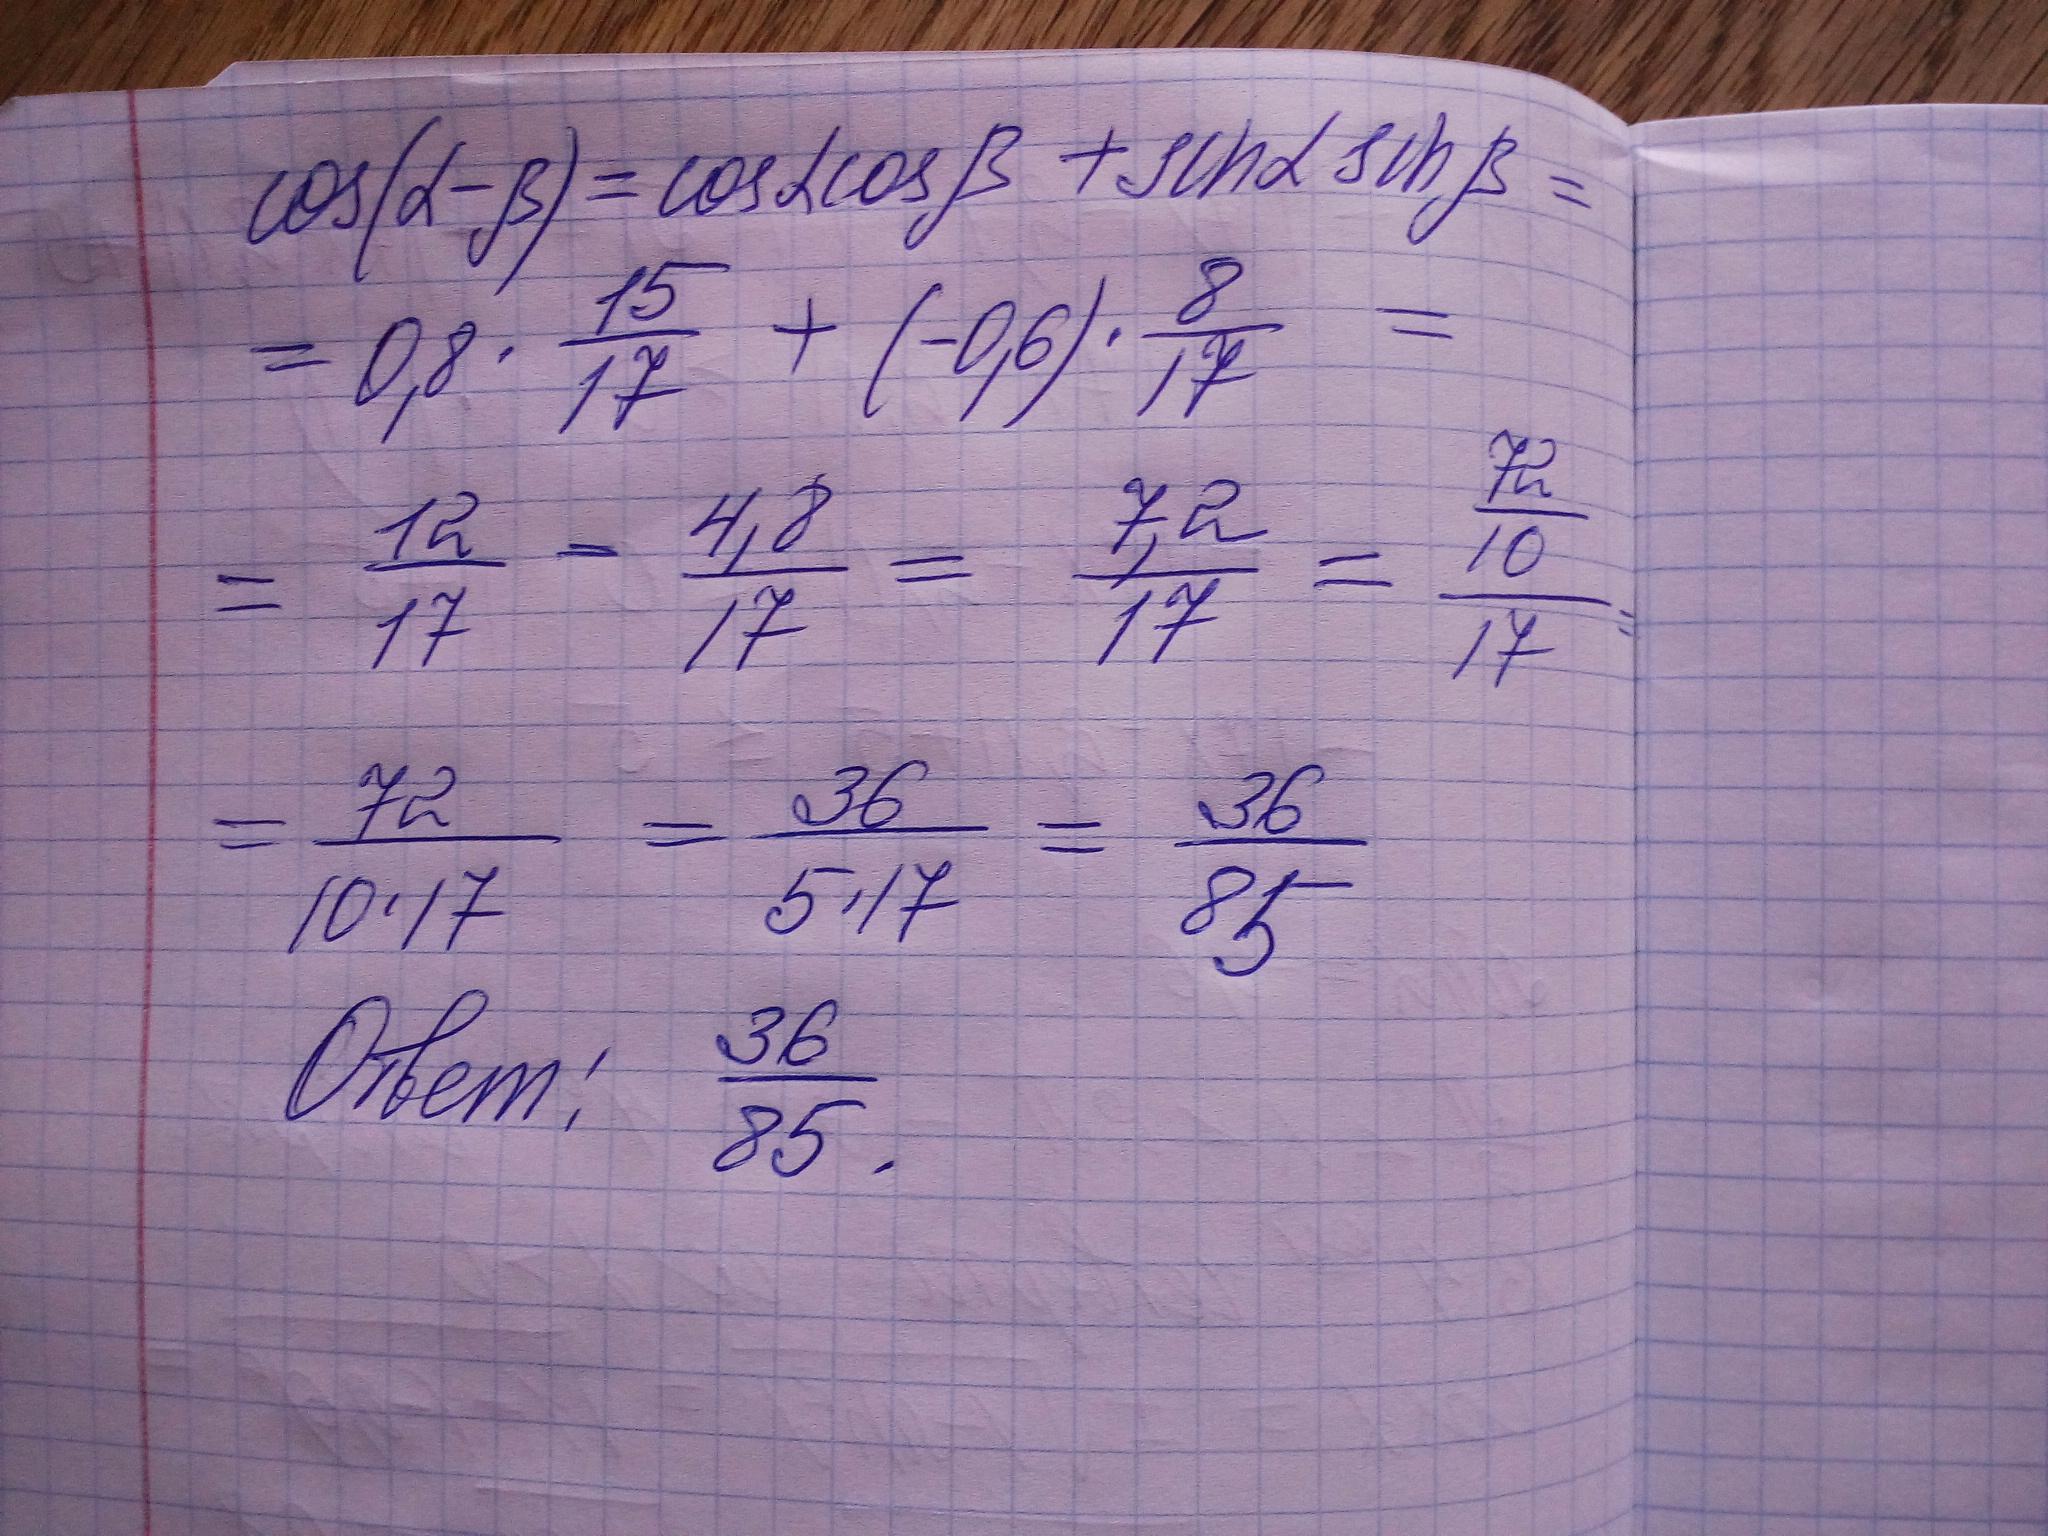 cos(α-β)=cosαcosβ+sinαsinβ=
=0,8·15/17+(-0,6)·8/17=
=12/17-4,8/17=7,2/17=72/10/17=
=72/10·17=36/5·17=36/85
Ответ: 36/85.